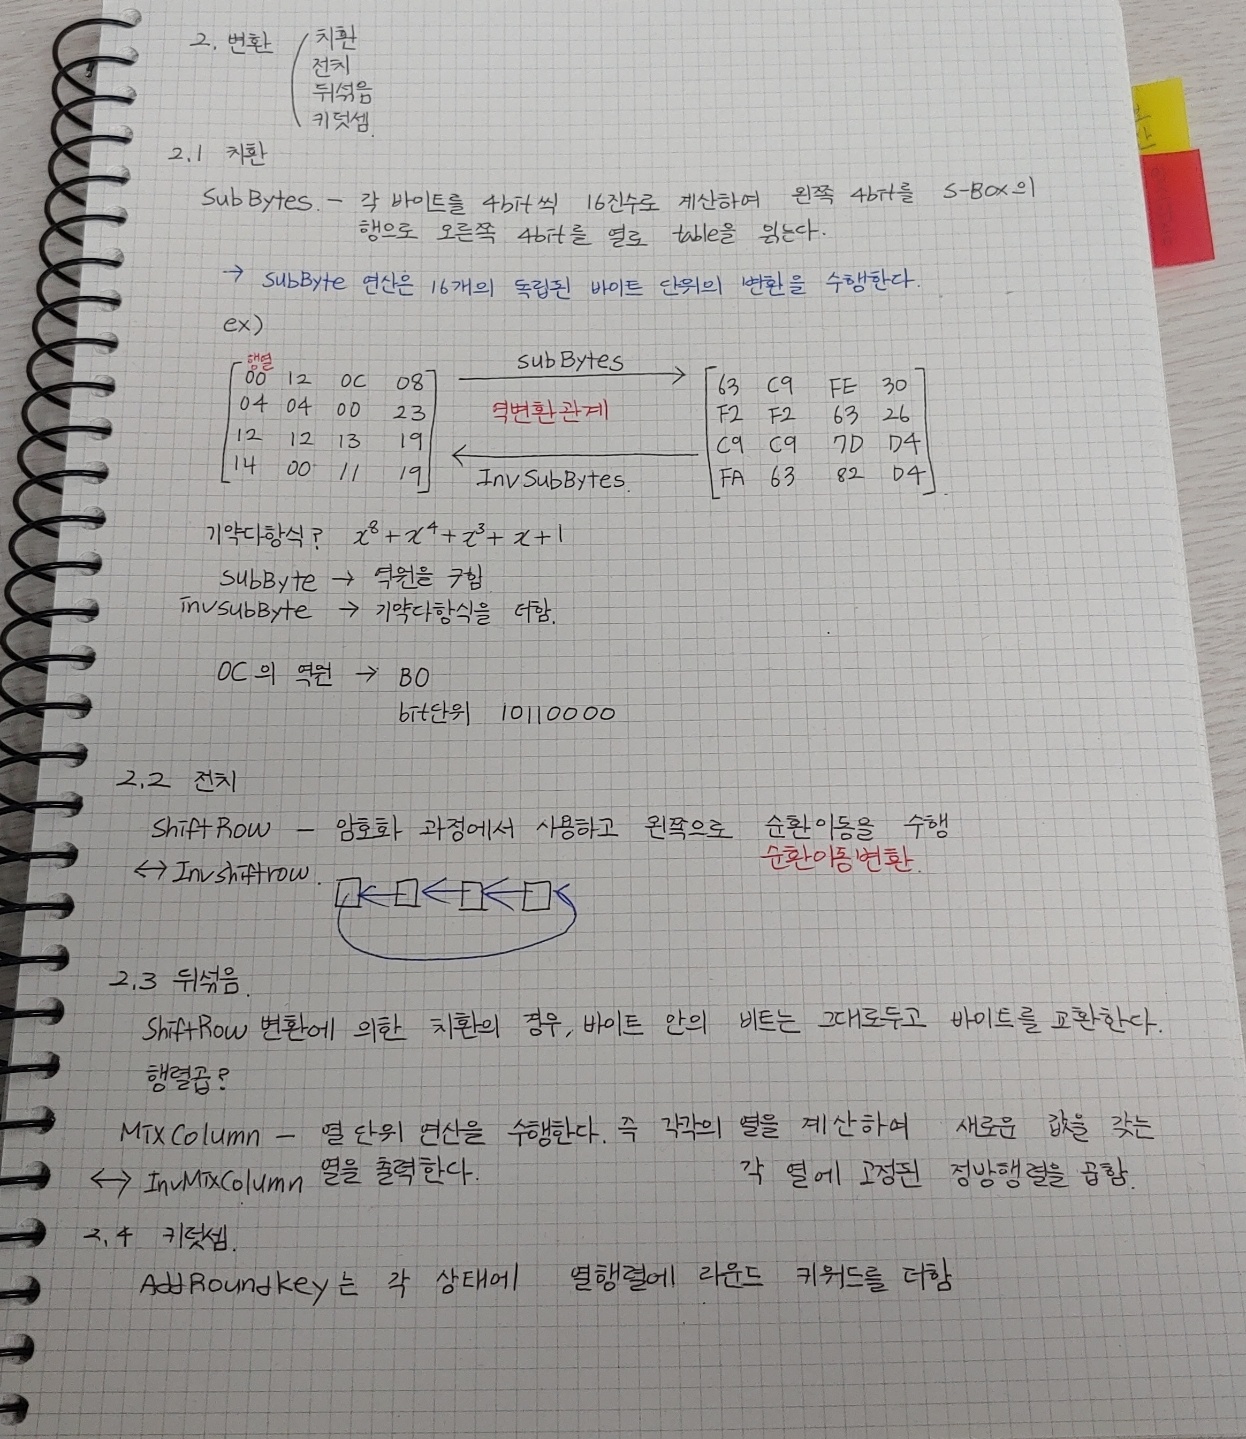 2. 변환
치환
전치
뒤섞음
키덧셈.
2.1 치환
SubBytes. - 각 바이트를 4bit씩 16진수로 계산하여 왼쪽 4bit를 S-BOX의
행으로 오른쪽 4bit를 열로 table을 읽는다.
→ SubByte 연산은 16개의 독립된 바이트 단위의 변환을 수행한다.
ex)
행열
00 12 0C 08
04 04 00 23
12 12 13 19
14 00 11 19
subBytes
역변환관계
InvSubBytes.
63 C9 FE 30
F2 F2 63 26
C9 C9 7D D4
FA 63 82 D4
기약다항식? x⁸+x⁴+x³+x+1
SubByte → 역원을 구함
InvsubByte → 기약다항식을 더함.
0C의 역원 → B0
bit단위 10110000
2.2 전치
ShiftRow - 암호화 과정에서 사용하고 왼쪽으로 순환이동을 수행
순환이동변환.
↔ Invshiftrow.
2.3 뒤섞음.
ShiftRow 변환에 의한 치환의 경우, 바이트 안의 비트는 그대로두고 바이트를 교환한다.
행렬곱?
MixColumn - 열 단위 연산을 수행한다. 즉 각각의 열을 계산하여 새로운 값을 갖는
↔ InvMixColumn 열을 출력한다. 각 열에 고정된 정방행렬을 곱함.
2.4 키덧셈.
AddRoundkey는 각 상태에 열행렬에 라운드 키워드를 더함